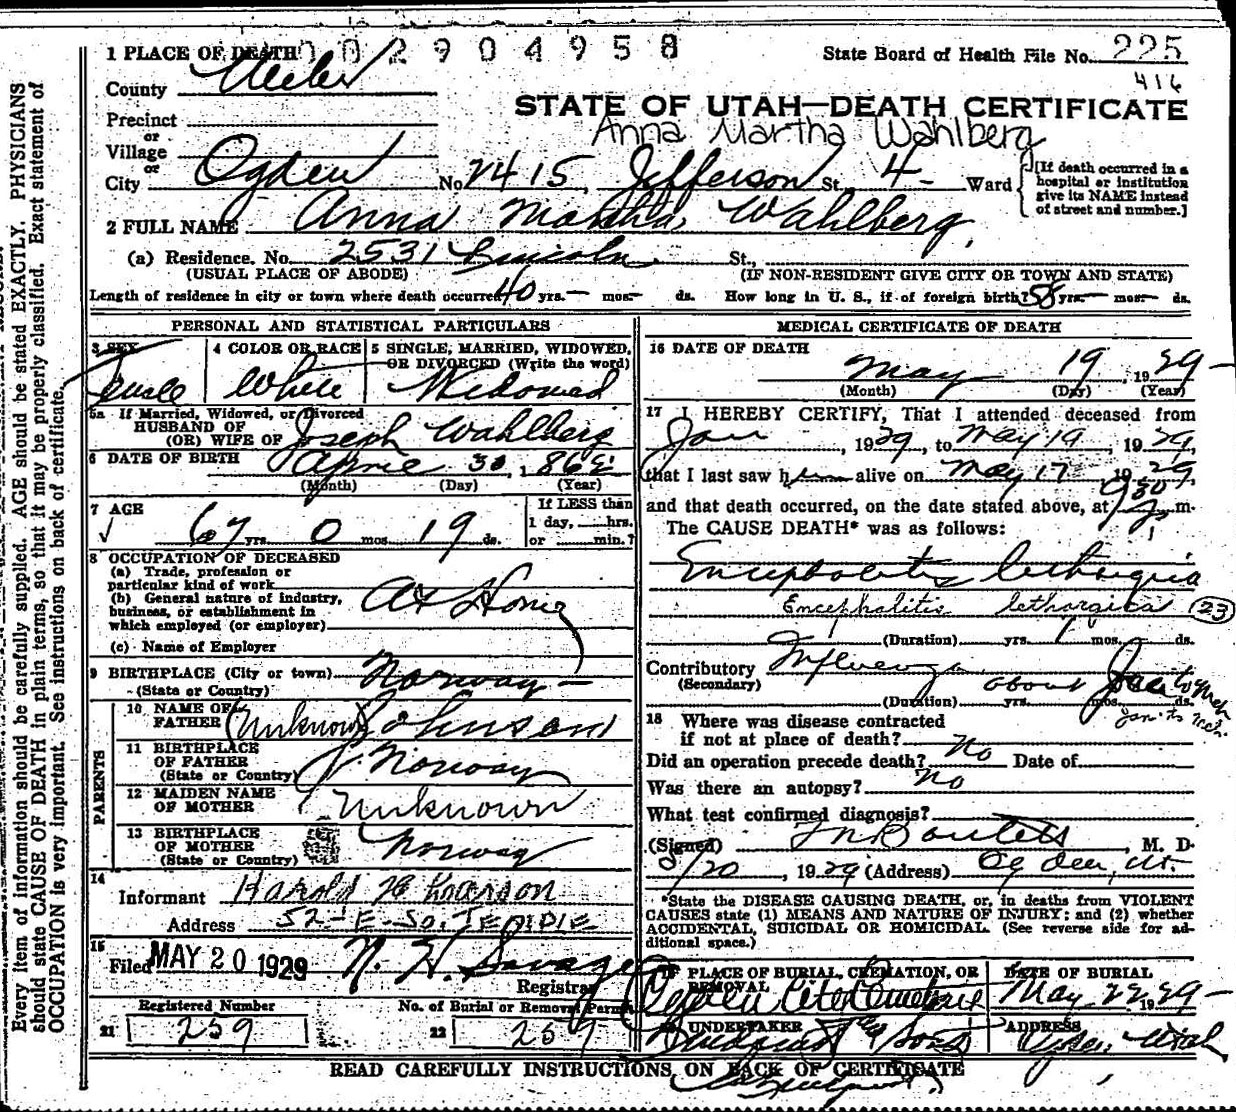 1 PLACE OF DEATH 002904958 State Board of Health File No. 225
County Weber 416
STATE OF UTAH—DEATH CERTIFICATE
Precinct
Anna Martha Wahlberg
or
Village
or
City Ogden No. 2415 Jefferson St. 4 Ward
[If death occurred in a hospital or institution give its NAME instead of street and number.]
2 FULL NAME Anna Martha Wahlberg
(a) Residence. No. 2531 Lincoln St.,
(USUAL PLACE OF ABODE) (IF NON-RESIDENT GIVE CITY OR TOWN AND STATE)
Length of residence in city or town where death occurred 40 yrs. — mos. — ds. How long in U. S., if of foreign birth? 58 yrs. — mos. — ds.
PERSONAL AND STATISTICAL PARTICULARS
3 SEX
Female
4 COLOR OR RACE
White
5 SINGLE, MARRIED, WIDOWED,
OR DIVORCED (Write the word)
Widowed
5a If Married, Widowed, or Divorced
HUSBAND OF
(OR) WIFE OF Joseph Wahlberg
6 DATE OF BIRTH April 30, 1862
(Month) (Day) (Year)
7 AGE
67 yrs. 0 mos. 19 ds.
If LESS than
1 day, hrs.
or min.?
8 OCCUPATION OF DECEASED
(a) Trade, profession or
particular kind of work
(b) General nature of industry,
business, or establishment in
which employed (or employer)
At Home
(c) Name of Employer
9 BIRTHPLACE (City or town) Norway —
(State or Country)
PARENTS
10 NAME OF
FATHER (Unknown) Johnson
11 BIRTHPLACE
OF FATHER
(State or Country) Norway
12 MAIDEN NAME
OF MOTHER Unknown
13 BIRTHPLACE
OF MOTHER
(State or Country) Norway
14
Informant Harold
Address 52-E-So. TEMPLE
15
Filed MAY 20 1929 N. H. Savage
Registrar
Registered Number No. of Burial or Removal Permit
21 259 22 259
MEDICAL CERTIFICATE OF DEATH
16 DATE OF DEATH
May 19, 1929
(Month) (Day) (Year)
17 I HEREBY CERTIFY, That I attended deceased from
Jan, 1929, to May 19, 1929,
that I last saw her alive on May 17 1929,
and that death occurred, on the date stated above, at 930 m.
The CAUSE DEATH* was as follows:
Encephalitis lethargica
Encephalitis lethargica (23)
(Duration) yrs. 1 mos. ds.
Contributory Influenza
(Secondary) about Jan to Mch
(Duration) yrs. mos. ds.
Jan. to Mch.
18 Where was disease contracted
if not at place of death?
Did an operation precede death? No Date of
Was there an autopsy? No
What test confirmed diagnosis?
(Signed) M. D.
5/20, 1929 (Address) Ogden, Ut.
*State the DISEASE CAUSING DEATH, or, in deaths from VIOLENT
CAUSES state (1) MEANS AND NATURE OF INJURY; and (2) whether
ACCIDENTAL, SUICIDAL OR HOMICIDAL. (See reverse side for ad-
ditional space.)
PLACE OF BURIAL, CREMATION, OR
REMOVAL
Ogden City Cemetery
DATE OF BURIAL
May 22 1929
UNDERTAKER
& Sons
ADDRESS
Ogden, Utah
READ CAREFULLY INSTRUCTIONS ON BACK OF CERTIFICATE
Every item of information should be carefully supplied. AGE should be stated EXACTLY. PHYSICIANS
should state CAUSE OF DEATH in plain terms, so that it may be properly classified. Exact statement of
OCCUPATION is very important. See instructions on back of certificate.